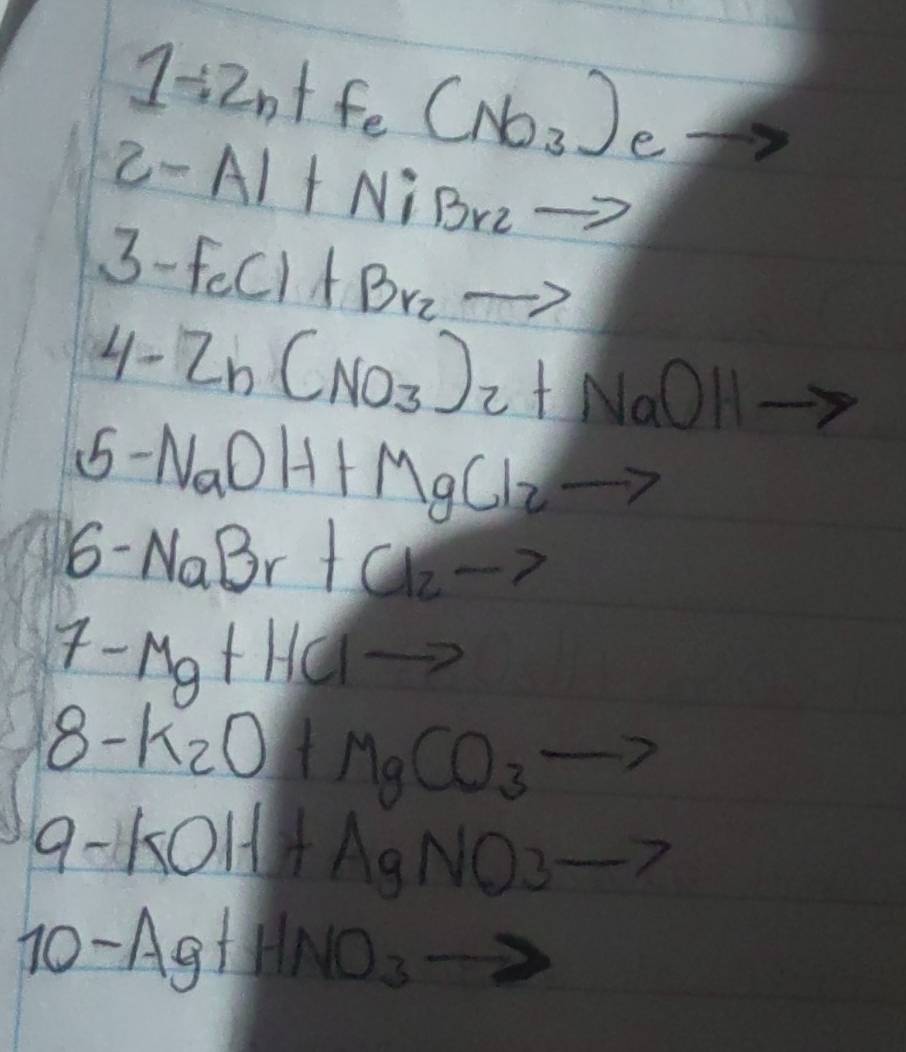 1-Zn + Fe (No₃)e →
2- Al + NiBr₂ →
3- FeCl + Br₂ →
4- Zn (NO₃)₂ + NaOH →
5- NaOH + MgCl₂ →
6- NaBr + Cl₂ →
7- Mg + HCl →
8- K₂O + MgCO₃ →
9- KOH + AgNO₃ →
10- Ag + HNO₃ →